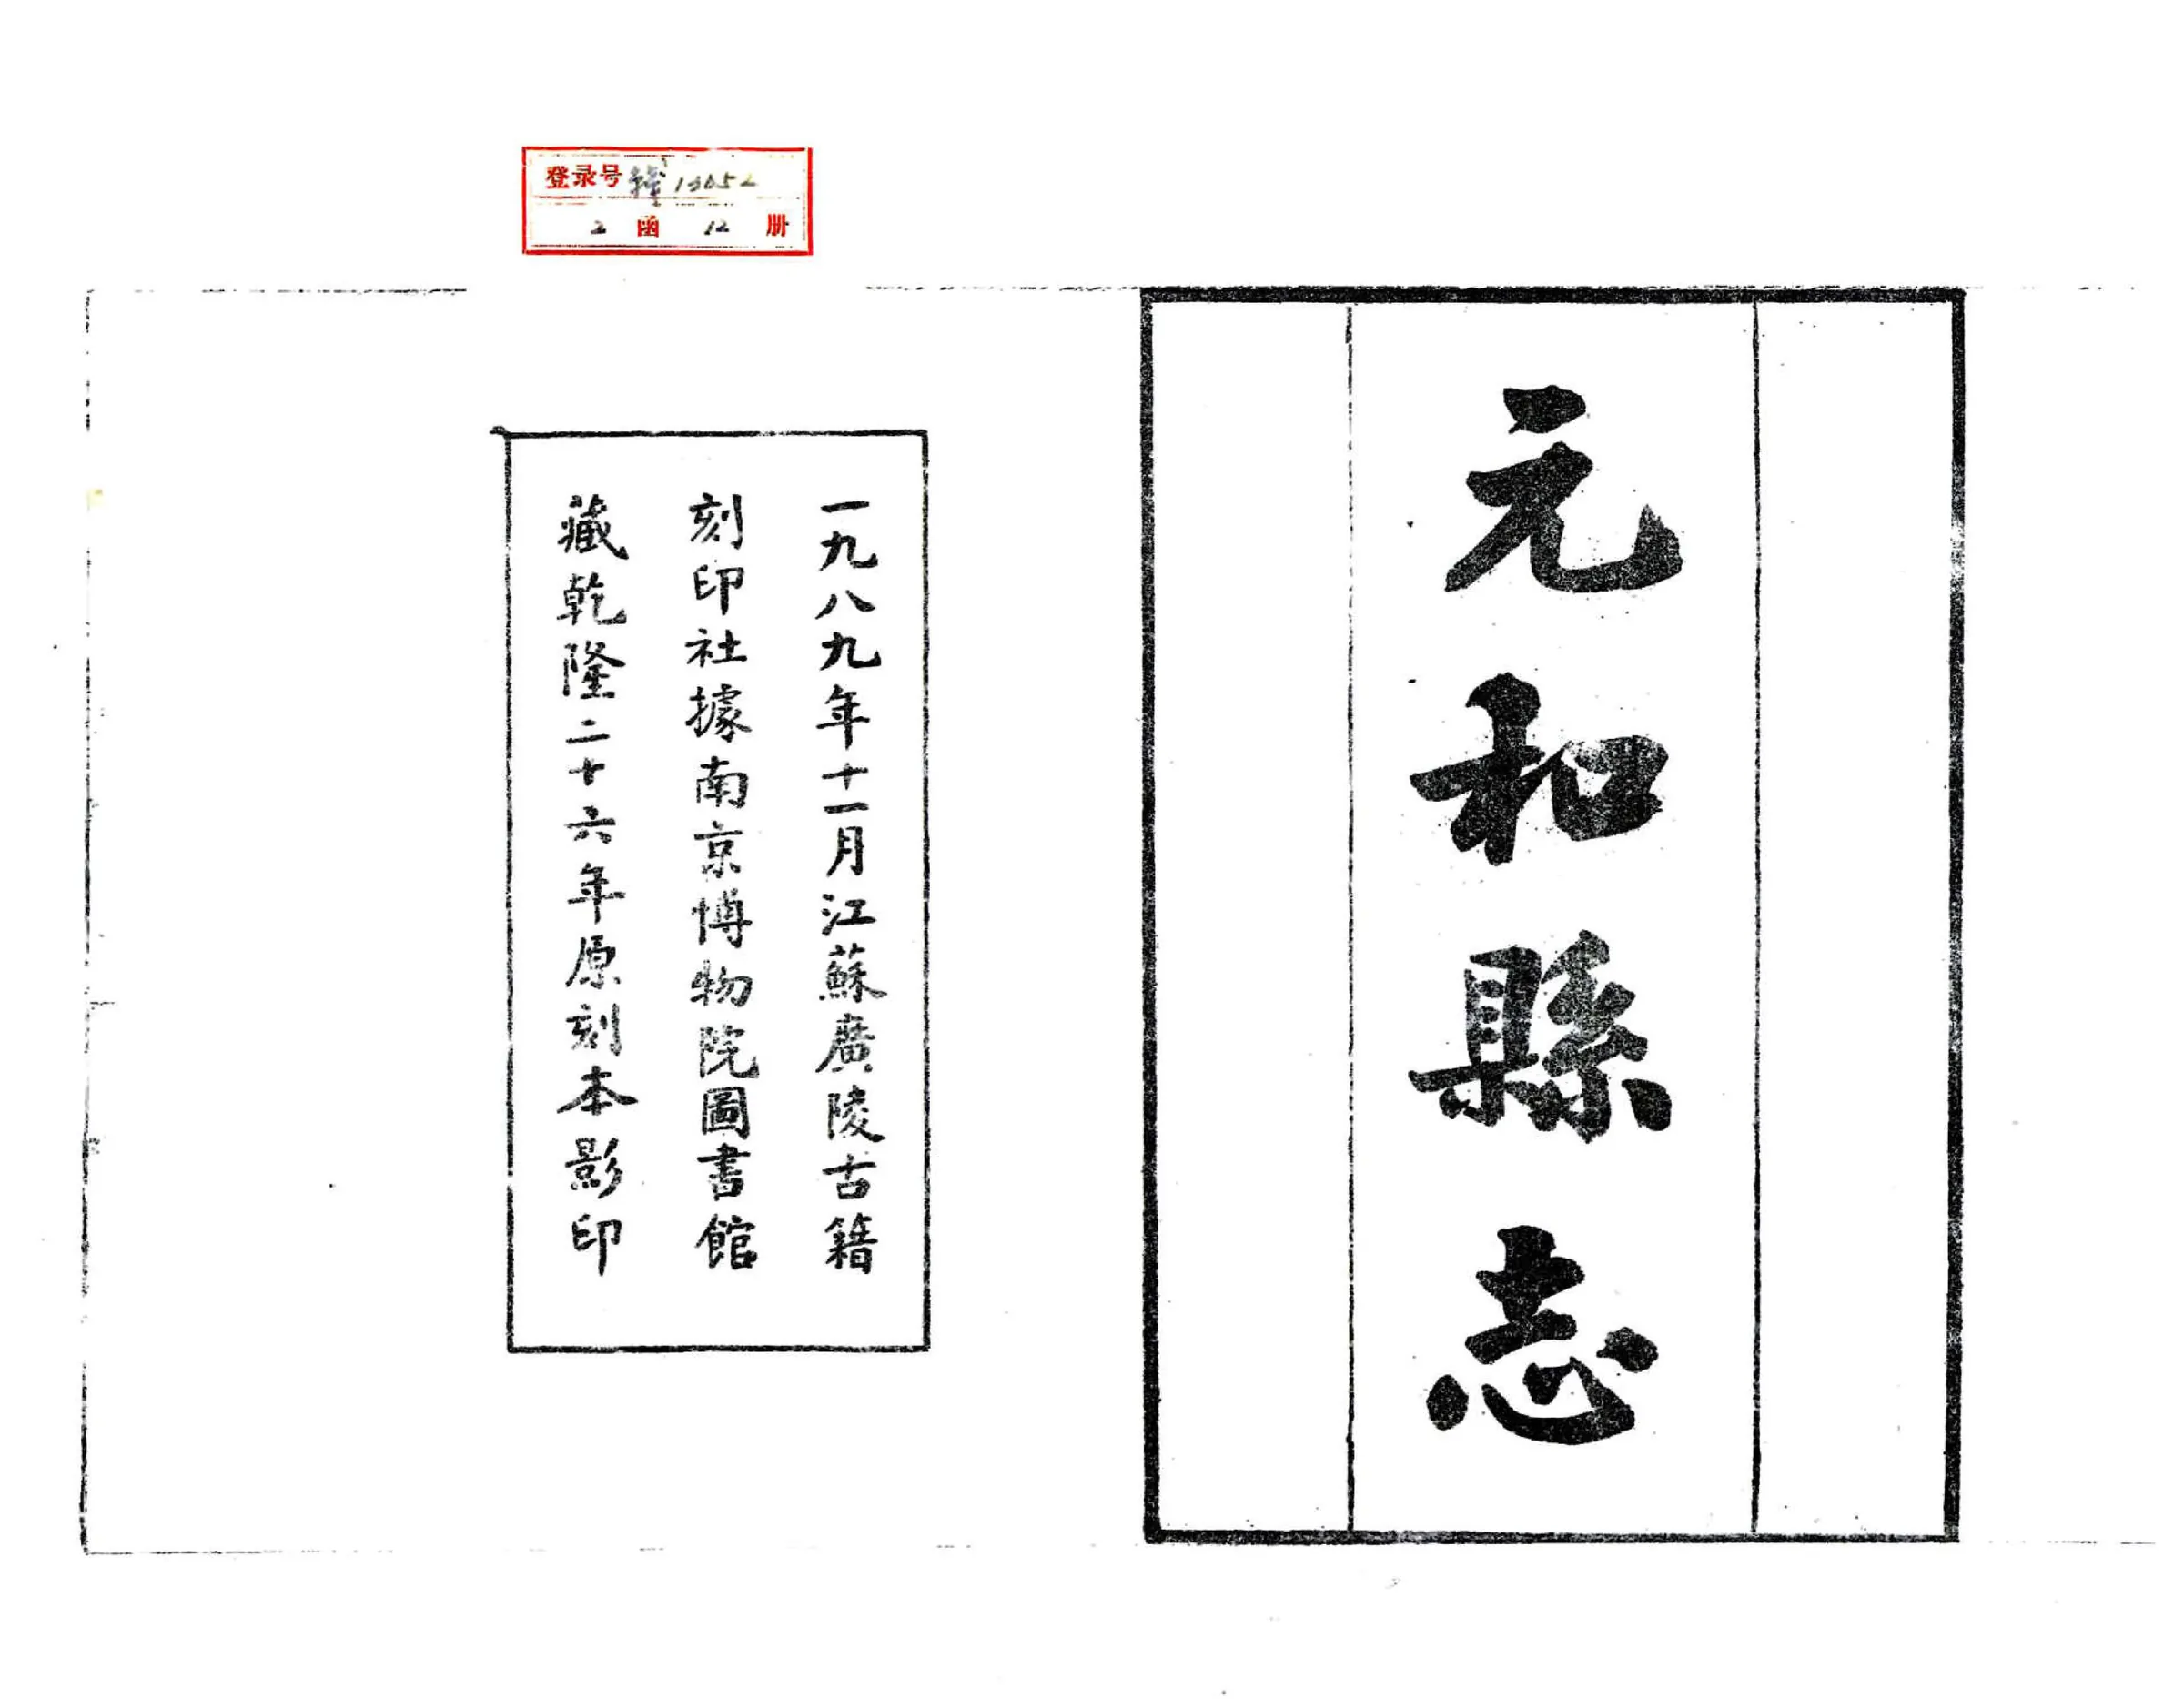 元和縣志
一九八九年十一月江蘇廣陵古籍
刻印社據南京博物院圖書館
藏乾隆二十六年原刻本影印
登录号 13052
2 函 12 册